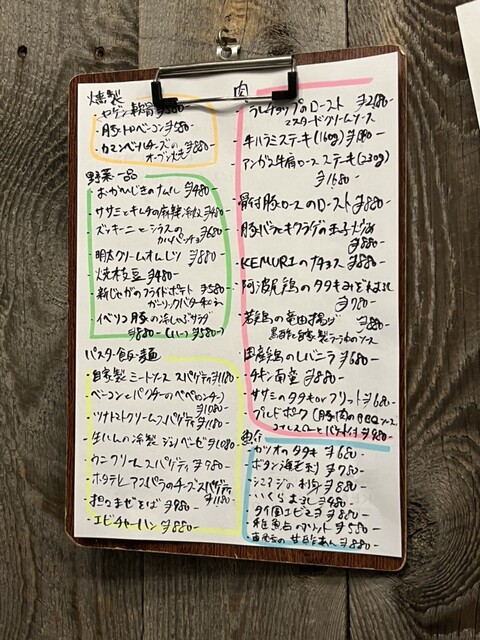 燻製
・ヤゲン軟骨
・豚トロベーコン ¥580-
・カマンベールチーズの
オーブン焼き ¥880-
野菜一品
・おかひじきのナムル ¥480-
・ササミとキムチの麻辣冷奴 ¥480-
・ズッキーニとシラスの
カルパッチョ ¥680-
・明太クリームオムレツ ¥880-
・焼枝豆 ¥480-
・新じゃがのフライドポテト ¥580-
ガーリックバター
・イベリコ豚の冷しゃぶサラダ
¥880- (ハーフ ¥580-)
パスタ・飯・麺
・自家製ミートソーススパゲティ ¥1180-
・ベーコンとパクチーのペペロンチーノ
¥1080-
・ツナトマトクリームスパゲティ ¥1180-
・生ハムの冷製ジェノベーゼ ¥1080-
・ウニクリームスパゲティ ¥980-
・ホタテとアスパラのチーズスパゲティ
¥1180-
・担々まぜそば ¥980-
・エビチャーハン ¥880-
肉
・ラムチョップのロースト ¥2,180-
マスタードクリームソース
・牛ハラミステーキ(160g)
・アンガス牛肩ロースステーキ(230g)
¥1680-
・骨付豚ロースのロースト ¥880-
・豚バラとキクラゲの玉子炒め
¥880-
・KEMURIのナチョス ¥880-
・阿波尾鶏のタタキ
¥780-
・若鶏の竜田揚げ ¥880-
黒酢と自家製ラー油のソース
・国産鶏のレバニラ ¥680-
・チキン南蛮 ¥880-
・ササミのタタキorフリット ¥680-
・プルドポーク(豚肉のBBQソース)
コールスローとバンズ付 ¥980-
魚介
・カツオのタタキ ¥680-
・ボタン海老刺 ¥780-
・シマアジの刺身 ¥880-
・いくらおろし ¥480-
・タイ風エビマヨ ¥880-
・稚鮎の ¥580-